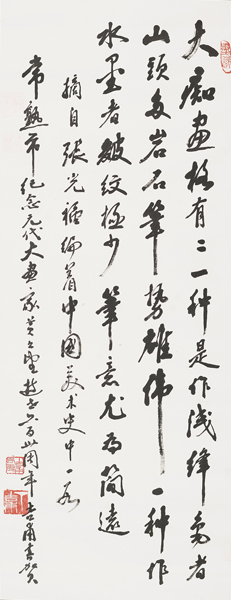 大痴画格有二一种是作浅绛色者
山頭多岩石筆势雄伟一种作
水墨者皴纹极少筆意尤为简遠
摘自张光福编著中國美术史中一段
常熟市纪念元代大画家黄公望逝世六百卅周年